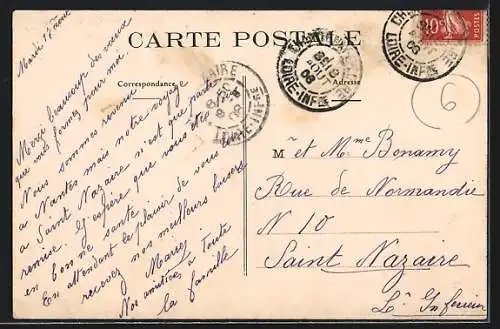 Mardi 17 août
CARTE POSTALE
Correspondance
Adresse
Merci beaucoup des voeux
que vous formez pour moi.
Nous sommes revenus
à Nantes mais notre voyage
à St Nazaire n'est que partie
remise. J'espère que vous êtes
en bonne santé
En attendant le plaisir de vous
recevez nos meilleurs baisers
Marie
Nos amitiés à toute
la famille
M et Mme Bonamy
Rue de Normandie
N 10
Saint Nazaire
Lre Inferieure
LOIRE-INFRE
LOIRE-INFRE
LOIRE-INFRE
10
POSTES
6